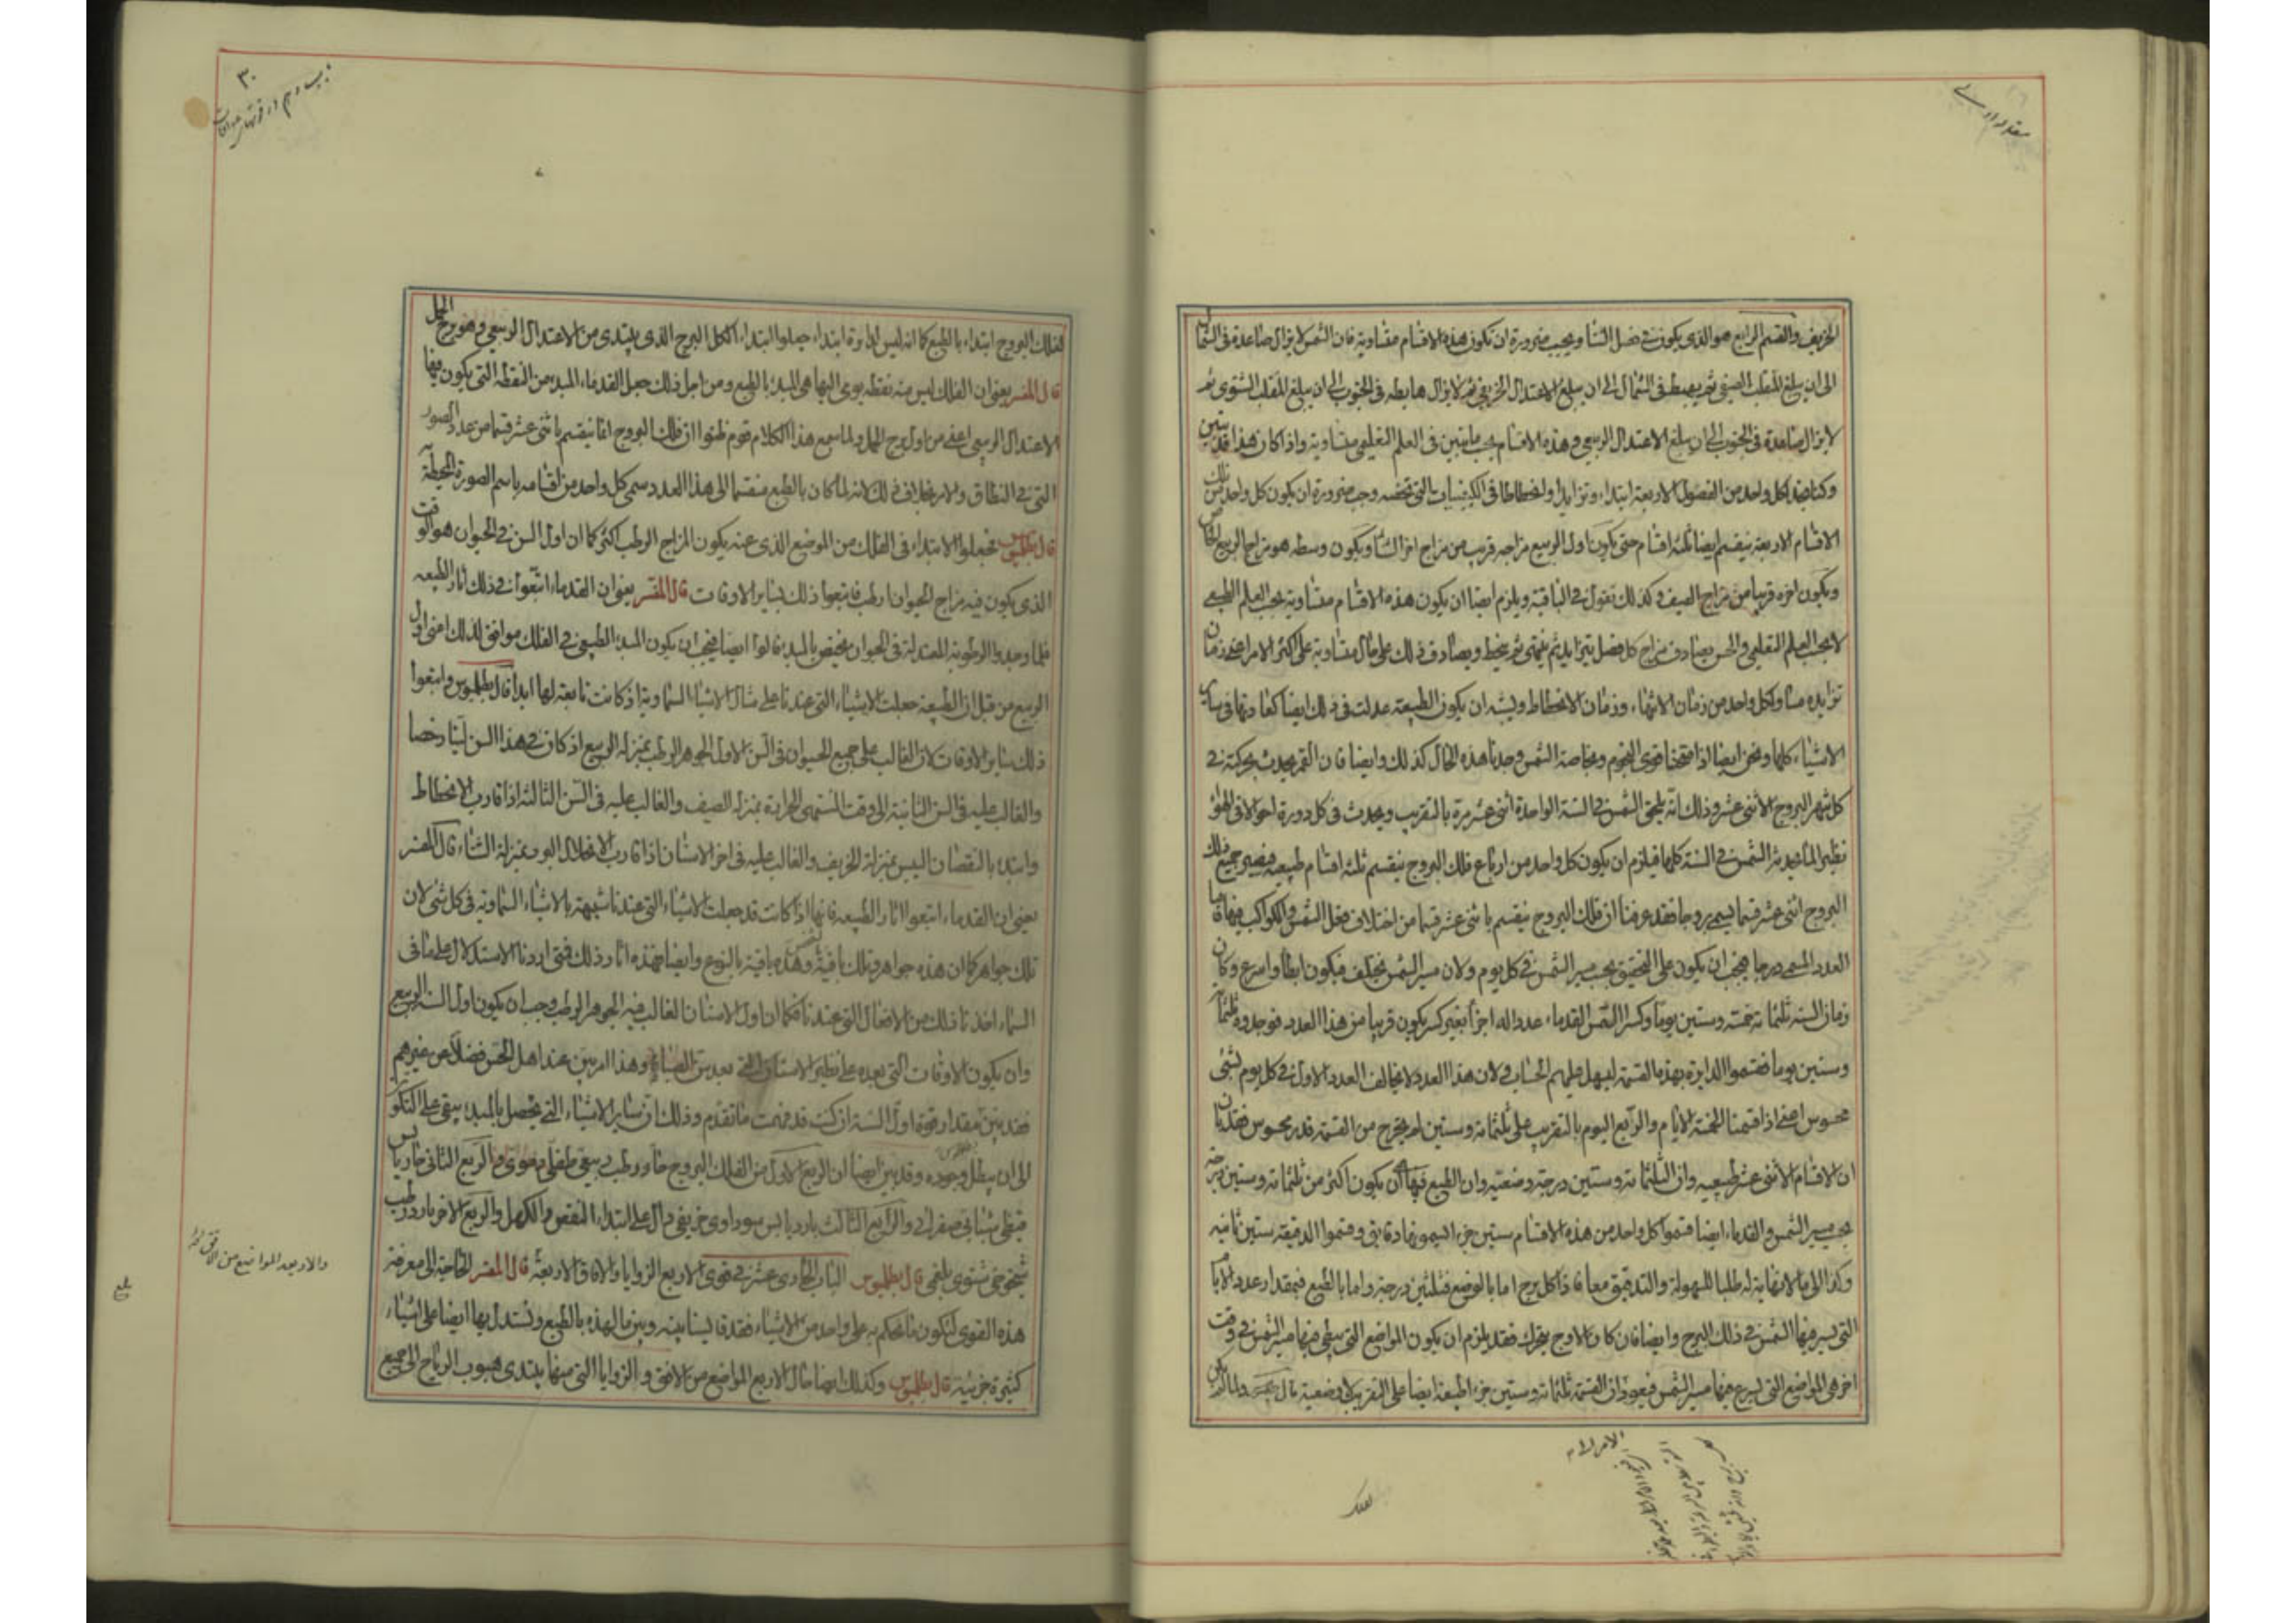 الخريف والقسم الرابع هو الذى يكون فى فصل الشتا ويجب ضرورة ان تكون هذه الاقسام متساوية فان الشمس لا يزال صاعدة فى الشمال
الى ان يبلغ المنقلب الصيفى ثم يهبط فى الشمال الى ان يبلغ الاعتدال الخريفى ثم لا يزال هابطه فى الجنوب الى ان يبلغ المنقلب الشتوى ثم
لا يزال صاعدة فى الجنوب الى ان يبلغ الاعتدال الربيعى وهذه الاقسام بحسب ما يتبين فى العلم التعليمى متساوية واذا كان هذا قد تبين
وكنا نجد لكل واحد من الفصول الاربعة ابتداء وتزايدا وانحطاطا فى الكيفيات التى تخصه وجب ضرورة ان يكون كل واحد من تلك
الاقسام الاربعة ينقسم ايضا ثلثة اقسام حتى يكون اول الربيع مزاجه قريب من مزاج اخر الشتا ويكون وسطه هو مزاج الربيع الخاص
ويكون اخره قريبا من مزاج الصيف وكذلك نقول فى الباقية ويلزم ايضا ان يكون هذه الاقسام متساوية بحسب العلم الطبيعى
لا بحسب العلم التعليمى والحس يصادف مزاج كل فصل يتزايد ثم ينتهى ثم ينحط ويصادف ذلك على حال متساوية على اكثر الامر اعنى زمان
تزايده مساو لكل واحد من زمان الانتهاء وزمان الانحطاط ويشبه ان يكون الطبيعة عدلت فى ذلك ايضا كعادتها فى ساير
الاشياء كلها ونحن ايضا اذا امتحنا قوى النجوم وبخاصة الشمس وجدنا هذه الحال كذلك وايضا فان القمر يحدث بحركته فى
كل شهر البروج الاثنى عشر وذلك انه يلحق الشمس فى السنة الواحدة اثنى عشر مرة بالتقريب ويحدث فى كل دورة احوالا فى الهواء
نظير لما تحدثه الشمس فى السنة كلها فيلزم ان يكون كل واحد من ارباع فلك البروج ينقسم ثلثه اقسام طبيعيه فيصير جميع فلك
البروج اثنى عشر قسما يسمى بروجا فقد عرفنا ان فلك البروج ينقسم باثنى عشر قسما من اختلاف فعل الشمس والكواكب فيها فاما
العدد المسمى درجا فيجب ان يكون على التحقيق بحسب سير الشمس فى كل يوم ولان مسير الشمس يختلف فيكون ابطأ واسرع وكان
زمان السنه ثلثمائة خمسة وستين يوما وكسرا التمس القدماء عددا له اجزأ بغير كسر يكون قريبا من هذا العدد فوجدوه ثلثمائة
وستين يوما فقسموا الدايرة بهذه القسمة ليسهل عليهم الحساب ولان هذا العدد لا يخالف العدد الاول فى كل يوم بشئ
محسوس اعنى اذا قسمنا الخمسة الايام والربع اليوم بالتقريب على ثلثمائة وستين لم يخرج من القسمة قدر محسوس فقد بان
ان الاقسام الاثنى عشر طبيعيه وان الثلثمائة وستين درجة وضعيه وان الطبع فيها ان يكون اكثر من ثلثمائة وستين درجة
بحسب مسير الشمس والقدماء ايضا قسموا كل واحد من هذه الاقسام ستين جزء اليسمونها دقايق وقسموا الدقيقة ستين ثانيه
وكذا الى ما لا نهاية له طلبا للسهولة والتدقيق معا فاذا كل برج اما بالوضع فثلثين درجة واما بالطبع فبمقدار عدد الايام
التى يسير فيها الشمس فى ذلك البرج وايضا فان كان الاوج يتحرك فقد يلزم ان يكون المواضع التى يبطى فيها مسير الشمس فى وقت
اخر هى المواضع التى يسرع فيها مسير الشمس فيعود ان القسمة ثلثمائة وستين جزء اطبيعة ايضا على التقريب لا وضعية قال ولما لم يكن
الامر لانه
٣٠
لفلك البروج ابتداء بالطبع كما انه ليس لدايرة ابتداء جعلوا ابتداء الكل البرج الذى يبتدى من الاعتدال الربيعى وهو برج الحمل
قال المفسر يعنى ان الفلك ليس منه نقطه يومى اليها هى المبدء بالطبع ومن اجل ذلك جعل القدماء المبدء من النقطه التى يكون فيها
الاعتدال الربيعى اعنى من اول برج الحمل ولما سمع هذا الكلام قوم ظنوا ان فلك البروج انما ينقسم باثنى عشر قسما من عدد الصور
التى فى النطاق والامر بخلاف ذلك لانه لما كان بالطبع منقسما الى هذا العدد سمى كل واحد من اقسامه باسم الصورة المحيطة به
قال بطلميوس فجعلوا الابتداء فى الفلك من الموضع الذى عنه يكون المزاج الرطب اكثر كما ان اول السن فى الحيوان هو الوقت
الذى يكون فيه مزاج الحيوان ارطب فاتبعوا ذلك بساير الاوقات قال المفسر يعنى ان القدماء اتبعوا فى ذلك اثار الطبيعه
فلما وجدوا الرطوبة المعتدلة فى الحيوان تختص بالمبدء قالوا ايضا فيجب ان يكون المبدء الطبيعى فى الفلك موافق لذلك اعنى اول
الربيع من قبل ان الطبيعة جعلت الاشياء التى عندنا على مثال الاشياء السماوية اذ كانت تابعة لها ابدا قال بطلميوس واتبعوا
ذلك بساير الاوقات لان الغالب على جميع الحيوان فى السن الاول الجوهر الرطب بمنزلة الربيع اذ كان فى هذا السن لينا رخصا
والغالب عليه فى السن الثانية الى وقت المنتهى الحرارة بمنزلة الصيف والغالب عليه فى السن الثالثة اذا قارب الانحطاط
وابتدء بالنقصان اليبس بمنزلة الخريف والغالب عليه فى اخر الاسنان اذا قارب الانحلال البرد بمنزلة الشتاء قال المفسر
يعنى ان القدماء اتبعوا اثار الطبيعه فانها اذا كانت قد جعلت الاشياء التى عندنا شبيهة بالاشياء السماوية فى كل شئ لان
تلك جواهر كما ان هذه جواهر وتلك باقية بالشخص وهذه باقية بالنوع وايضا فهذه اثار وذلك فمتى اردنا الاستدلال على ما فى
السماء اخذنا ذلك من الافعال التى عندنا فكما ان اول الاسنان الغالب فيه الجوهر الرطب وجب ان يكون اول السنه الربيع
وان يكون الاوقات التى بعده على نظير الاسنان التى بعد سن الصبا وهذا امر بين عند اهل الحس فضلا عن غيرهم
فقد بين مقدار قوة اول السنة ان كنت قد فهمت ما تقدم وذلك ان ساير الاشياء التى تحصل بالمبدء يبقى على التكون
الى ان يبطل وجوده وقد بين ايضا ان الربع الاول من الفلك البروج حار رطب ربيعى طفلى دموى والربع الثانى حار يابس
قيظى شبابى صفراوى والربع الثالث بارد يابس سوداوى خريفى دال على ابتداء النقص والكهل والربع الاخر بارد رطب
شيخوخى شتوى بلغمى قال بطلميوس الباب الحادى عشر فى قوى الاربع الزوايا والافاق الاربعة قال المفسر الحاجة الى معرفة
هذه القوى لتكون ما نحكم به على واحد من الاشياء فقد قايسنا بينه وبين ما لهذه بالطبع ونستدل بها ايضا على اشياء
كثيرة جزئية قال بطلميوس وكذلك ايضا حال الاربع المواضع من الافق والزوايا التى منها يبتدى هبوب الرياح الى جميع
والاربعه المواضع من الافق